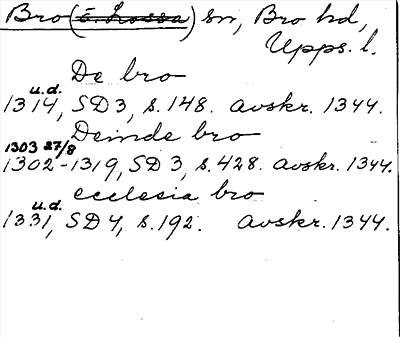 Bro (ö. Lossa) sn, Bro hd,
Upps. l.
De bro
u.d.
1314, SD 3, s. 148. Avskr. 1344.
Deinde bro
1303 27/8
1302-1319, SD 3, s. 428. Avskr. 1344.
ecclesia bro
u.d.
1331, SD 4, s. 192. Avskr. 1344.